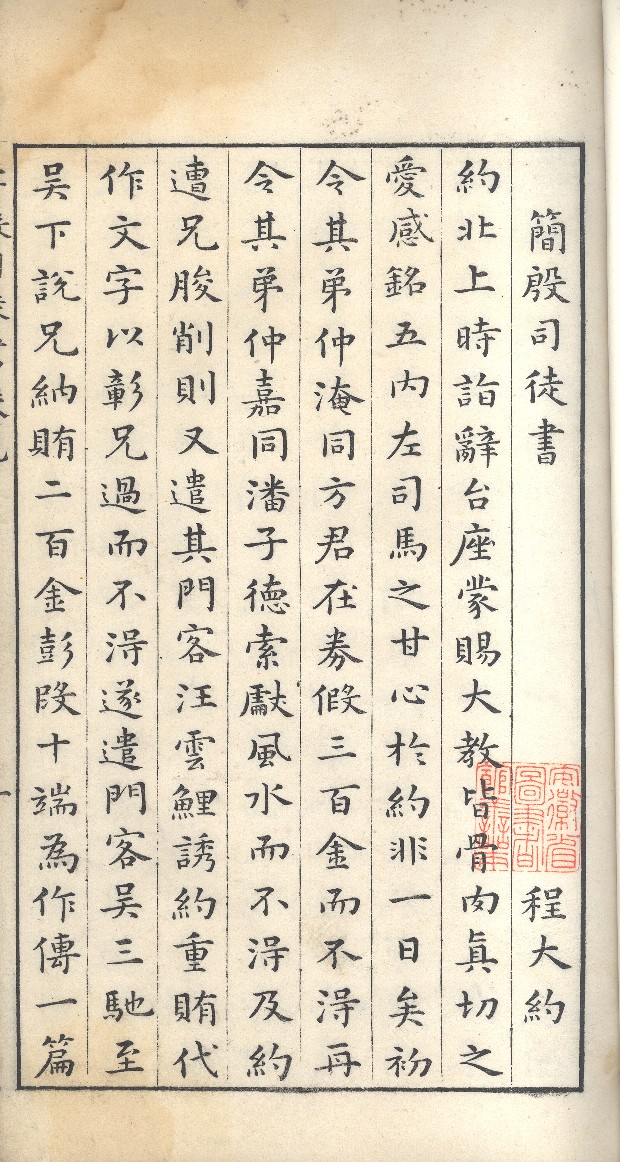 簡殷司徒書 程大約
約北上時詣辭台座蒙賜大教皆骨肉眞切之
愛感銘五内左司馬之甘心於約非一日矣初
令其弟仲淹同方君在券假三百金而不淂再
令其弟仲嘉同潘子徳索獻風水而不淂及約
遭兄朘削則又遣其門客汪雲鯉誘約重賄代
作文字以彰兄過而不淂遂遣門客吴三馳至
吴下說兄納賄二百金彭段十端為作傳一篇
安徽省